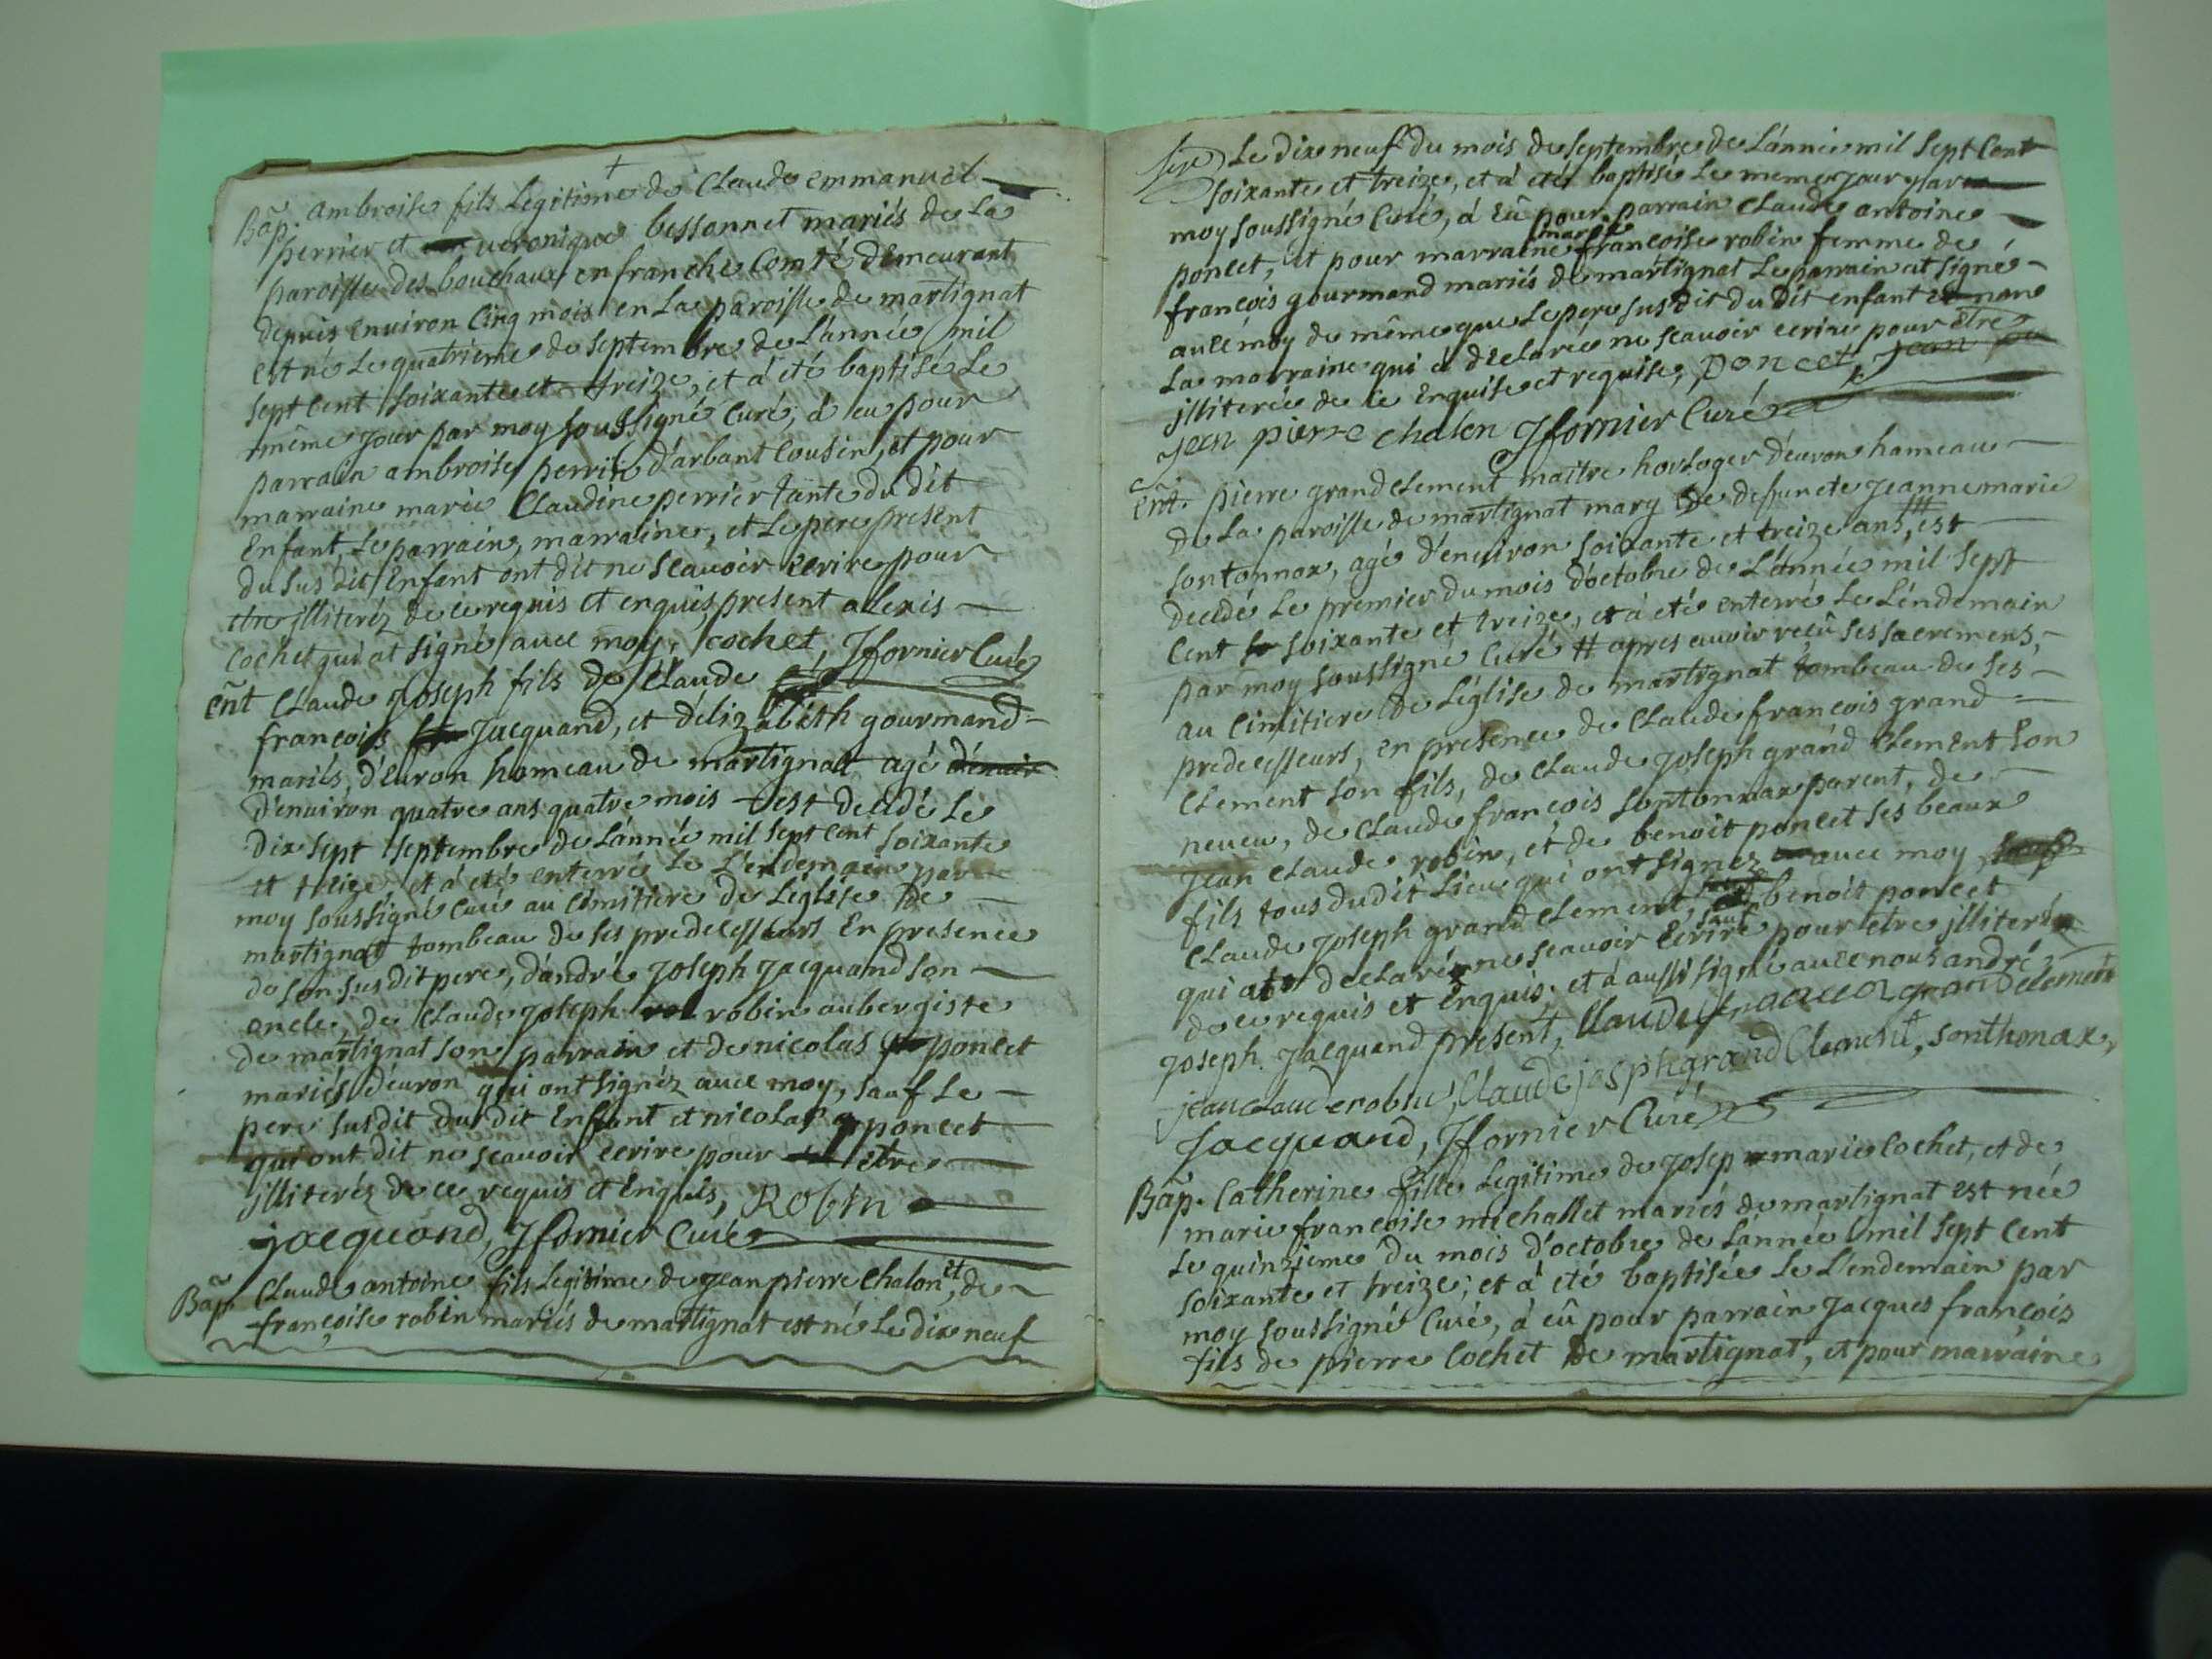 Bap. ambroise fils Legitime de Claude emmanuel
perrier et veronique bessonnet mariés de La
paroisse des bouchaux en franche Comté demeurant
depuis environ Cinq mois en La paroisse de martignat
est né Le quatrieme de septembre de L'année mil
sept cent soixante et treize, et à été baptisé Le
même jour par moy soussigné Curé, à eu pour
parrain ambroise perrin d'arbant Cousin, et pour
marraine marie Claudine perrier tante du dit
Enfant, Le parrain, marraine, et Le pere present
du susdit Enfant ont dit ne scavoir ecrire pour
etre illiteréz de ce requis et enquis, present alexis
Cochet qui at signé avec moy, cochet, Jfornier Curé
ent Claude Joseph fils de Claude
françois Jacquand, et d'élizabéth gourmand
mariés, d'Euron hameau de martignat agé
d'environ quatre ans quatre mois est decedé Le
Dix sept septembre de L'année mil sept cent soixante
et treize, et à eté enterré Le L'endemain par
moy soussigné Curé au cimitiere de L'eglise de
martignat tombeau de ses predecesseurs En presence
de son susdit pere, d'andré Joseph Jacquand son
oncle, de Claude Joseph robin aubergiste
de martignat son parrain et de nicolas poncet
mariés d'euron qui ont signéz avec moy, sauf Le
pere susdit du dit Enfant et nicolas poncet
qui ont dit ne scavoir ecrire pour être
illiteréz de ce requis et Enquis, Robin
jacquand, Jfornier Curé
Bap Claude antoine fils Legitime de jean pierre Chalon, et de
françoise robin mariés de martignat est né Le dix neuf
Le Dix neuf du mois de septembre de L'année mil sept Cent
soixante et treize, et à eté baptisé Le meme jour par
moy soussigné Curé, à Eû pour parrain Claude antoine
poncet, et pour marraine marie françoise robin femme de
françois gourmand mariés de martignat Le parrain at signé
avec moy de même que Le pere susdit du dit enfant non
La marraine qui à déclaré ne scavoir ecrire pour être
illiterée de ce Enquise et requise, Poncet, jean
jean pierre chalon Jfornier Curé
ent. pierre grand Clement maitre horloger d'euron hameau
de La paroisse de martignat mary de defuncte Jeanne marie
sontonnax, agé d'environ soixante et treize ans, est
decedé Le premier du mois d'octobre de L'année mil sept
Cent soixante et treize, et à eté enterré Le Léndemain
par moy soussigné Curé # apres avoir reçû ses sacremens,
au Cimitiere de L'église de martignat tombeau de ses
predecesseurs, en presence de Claude françois grand
Clement son fils, de Claude Joseph grand Clement son
neveu, de Claude françois sontonnax parent, de
jean Claude robin, et de benoit poncet ses beaux
fils tous dudit Lieu qui ont signéz avec moy
Claude Joseph grand Clement, sauf benoit poncet
qui at declaré ne scavoir Ecrire pour etre illiteré
de ce requis et enquis, et à aussi signé avec nous andré
joseph Jacquand present, Claude grand clement
jean claude robin, Claude joseph grand Clement, sonthonax,
Jacquand, Jfornier Curé
Bap. Catherine fille Legitime de Josep marie Cochet, et de
marie françoise michallet mariés de martignat est née
Le quinzieme du mois d'octobre de L'année mil sept Cent
soixante et treize; et à été baptisée Le L'endemain par
moy soussigné Curé, à eû pour parrain Jacques françois
fils de pierre Cochet de martignat, et pour marraine